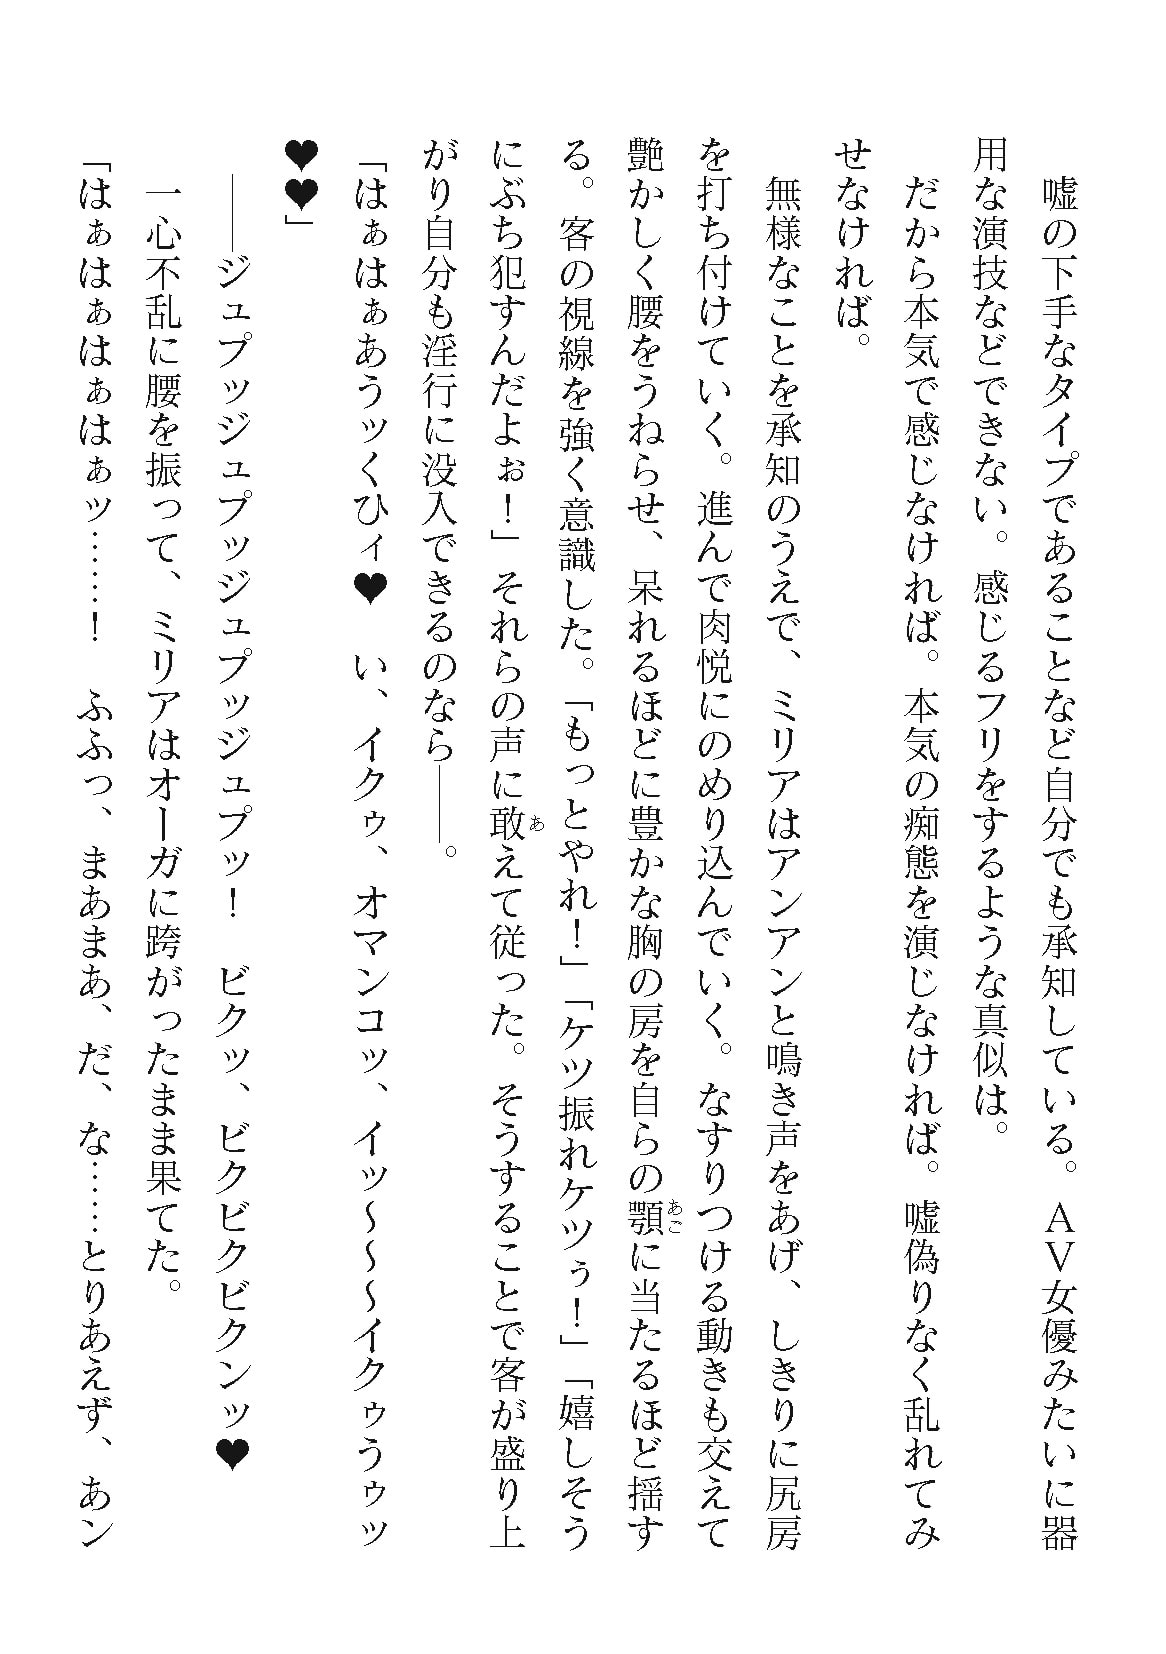 嘘の下手なタイプであることなど自分でも承知している。ＡＶ女優みたいに器
用な演技などできない。感じるフリをするような真似は。
　だから本気で感じなければ。本気の痴態を演じなければ。嘘偽りなく乱れてみ
せなければ。
　無様なことを承知のうえで、ミリアはアンアンと鳴き声をあげ、しきりに尻房
を打ち付けていく。進んで肉悦にのめり込んでいく。なすりつける動きも交えて
艶かしく腰をうねらせ、呆れるほどに豊かな胸の房を自らの顎あごに当たるほど揺す
る。客の視線を強く意識した。「もっとやれ！」「ケツ振れケツぅ！」「嬉しそう
にぶち犯すんだよぉ！」それらの声に敢あえて従った。そうすることで客が盛り上
がり自分も淫行に没入できるのなら――。
「はぁはぁあうッくひィ♥　い、イクゥ、オマンコッ、イッ～～～イクゥうゥッ
♥♥」
　――ジュプッジュプッジュプッジュプッ！　ビクッ、ビクビクビクンッ♥
　一心不乱に腰を振って、ミリアはオーガに跨がったまま果てた。
「はぁはぁはぁはぁッ……！　ふふっ、まあまあ、だ、な……とりあえず、あン